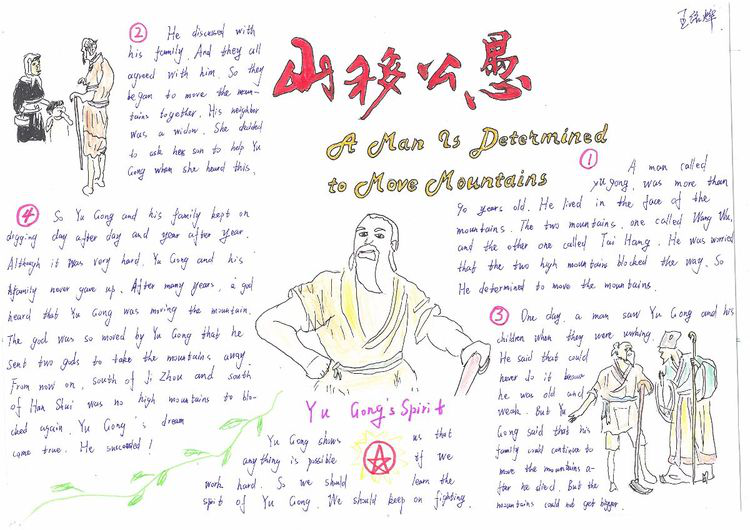 愚公移山
A Man Is Determined
to Move Mountains
1
A man called
yu gong, was more than
90 years old. He lived in the face of the
mountains. The two mountains, one called Wang Wu,
and the other one called Tai Hang. He was worried
that the two high mountains blocked the way. So
He determined to move the mountains.
2
He discussed with
his family. And they all
agreed with him. So they
began to move the moun-
tains together. His neighbor
was a widow. She decided
to ask her son to help Yu
Gong when she heard this.
3
One day, a man saw Yu Gong and his
children when they were working.
He said that could
never do it because
he was old and
weak. But Yu
Gong said that his
family could continue to
move the mountains a-
fter he died. But the
mountains could not get bigger.
4
So Yu Gong and his family kept on
digging day after day and year after year.
Although it was very hard, Yu Gong and his
family never gave up. After many years, a god
heard that Yu Gong was moving the mountain.
The god was so moved by Yu Gong that he
sent two gods to take the mountains away
From now on, south of Ji Zhou and south
of Han Shui was no high mountains to blo-
cked again. Yu Gong's dream
came true. He succeeded!
Yu Gong's Spirit
Yu Gong shows us that
anything is possible if we
work hard. So we should learn the
spirit of Yu Gong. We should keep on fighting.